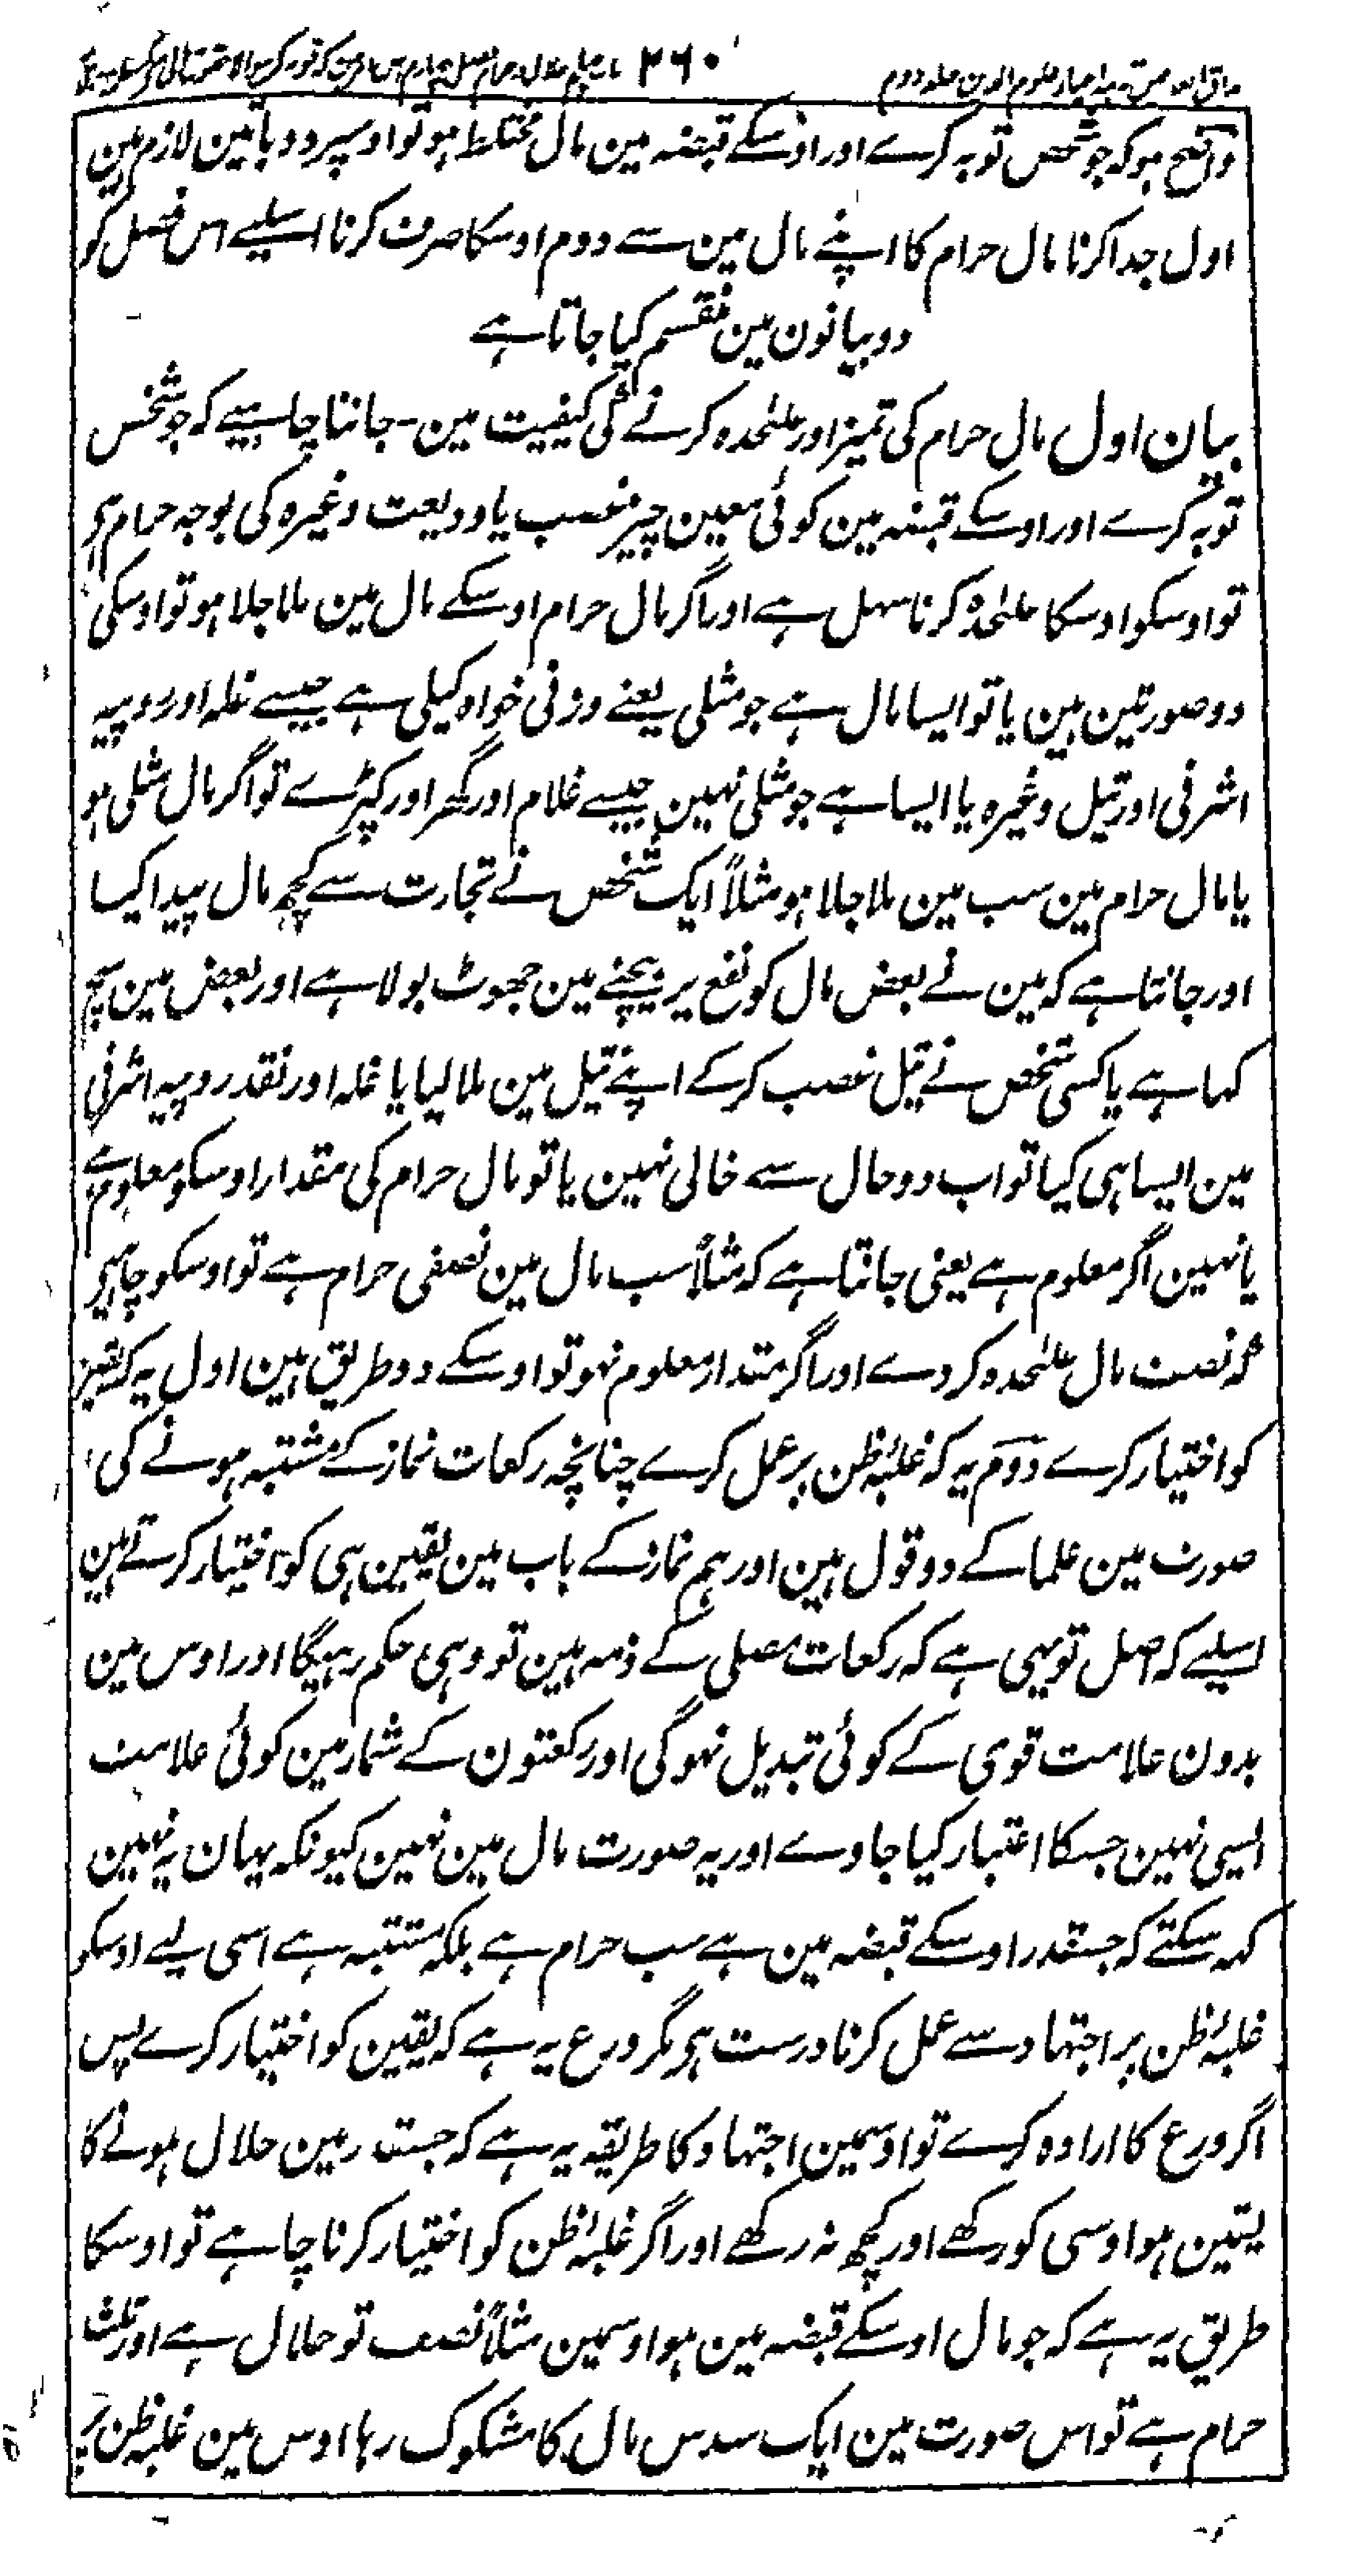 مذاق العارفین ترجمہ احیاء علوم الدین جلد دوم ۳۶۰ باب
واضح ہو کہ جو شخص توبہ کرے اور اوسکے قبضہ مین مال مختلط ہو تو اوسپر دو باتین لازم ہین
اول جدا کرنا مال حرام کا اپنے مال مین سے دوم اوسکا صرف کرنا اسلیے اس فصل کو
دو بیانون مین منقسم کیا جاتا ہے
بیان اول مال حرام کی تمیز اور علٰحدہ کرنے کی کیفیت مین۔ جاننا چاہیے کہ جو شخص
توبہ کرے اور اوسکے قبضہ مین کوئی معین چیز غصب یا ودیعت وغیرہ کی بوجہ حرام ہو
تو اوسکو اوسکا علٰحدہ کرنا سہل ہے اور اگر مال حرام اوسکے مال مین ملا جلا ہو تو اوسکی
دو صورتین ہین یا تو ایسا مال ہے جو مثلی یعنے وزنی خواہ کیلی ہے جیسے غلہ اور روپیہ
اشرفی اور تیل وغیرہ یا ایسا ہے جو مثلی نہین جیسے غلام اور گھر اور کپڑے تو اگر مال مثلی ہو
یا مال حرام مین سب مین ملا جلا ہو مثلاً ایک شخص نے تجارت سے کچھ مال پیدا کیا
اور جانتا ہے کہ مین نے بعض مال کو نفع پر بیچنے مین جھوٹ بولا ہے اور بعض مین سچ
کہا ہے یا کسی شخص نے تیل غصب کرکے اپنے تیل مین ملا لیا یا غلہ اور نقد روپیہ اشرفی
مین ایسا ہی کیا تو اب دو حال سے خالی نہین یا تو مال حرام کی مقدار اوسکو معلوم ہے
یا نہین اگر معلوم ہے یعنی جانتا ہے کہ مثلاً سب مال مین نصفی حرام ہے تو اوسکو چاہیے
کہ نصف مال علٰحدہ کر دے اور اگر مقدار معلوم نہو تو اوسکے دو طریق ہین اول یہ کہ یقین
کو اختیار کرے دوم یہ کہ غلبۂ ظن پر عمل کرے چنانچہ رکعات نماز کے مشتبہ ہونے کی
صورت مین علما کے دو قول ہین اور ہم نماز کے باب مین یقین ہی کو اختیار کرتے ہین
اسلیے کہ اصل تو یہی ہے کہ رکعات مصلی کے ذمہ ہین تو وہی حکم رہیگا اور اوس مین
بدون علامت قوی کے کوئی تبدیل نہوگی اور رکعتون کے شمار مین کوئی علامت
ایسی نہین جسکا اعتبار کیا جاوے اور یہ صورت مال مین نہین کیونکہ یہان یہ نہین
کہہ سکتے کہ جسقدر اوسکے قبضہ مین ہے سب حرام ہے بلکہ مشتبہ ہے اسی لیے اوسکو
غلبۂ ظن پر اجتہاد سے عمل کرنا درست ہی مگر ورع یہ ہے کہ یقین کو اختیار کرے پس
اگر ورع کا ارادہ کرے تو اوسمین اجتہاد کا طریقہ یہ ہے کہ جسقدر مین حلال ہونے کا
یقین ہو اوسی کو رکھے اور کچھ نہ رکھے اور اگر غلبۂ ظن کو اختیار کرنا چاہے تو اوسکا
طریق یہ ہے کہ جو مال اوسکے قبضہ مین ہو اوسمین مثلاً نصف تو حلال ہے اور ثلث
حرام ہے تو اس صورت مین ایک سدس مال کا مشکوک رہا اوس مین غلبۂ ظن پر